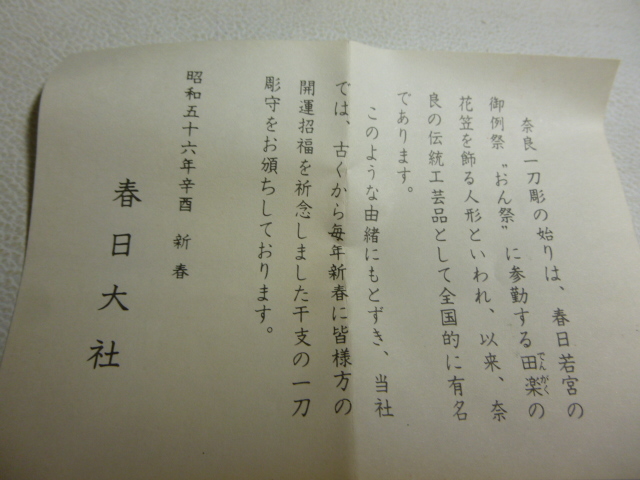 奈良一刀彫の始りは、春日若宮の
御例祭〝おん祭〟に参勤する田楽(でんがく)の
花笠を飾る人形といわれ、以来、奈
良の伝統工芸品として全国的に有名
であります。
このような由緒にもとずき、当社
では、古くから毎年新春に皆様方の
開運招福を祈念しました干支の一刀
彫守をお頒ちしております。
昭和五十六年辛酉 新春
春日大社